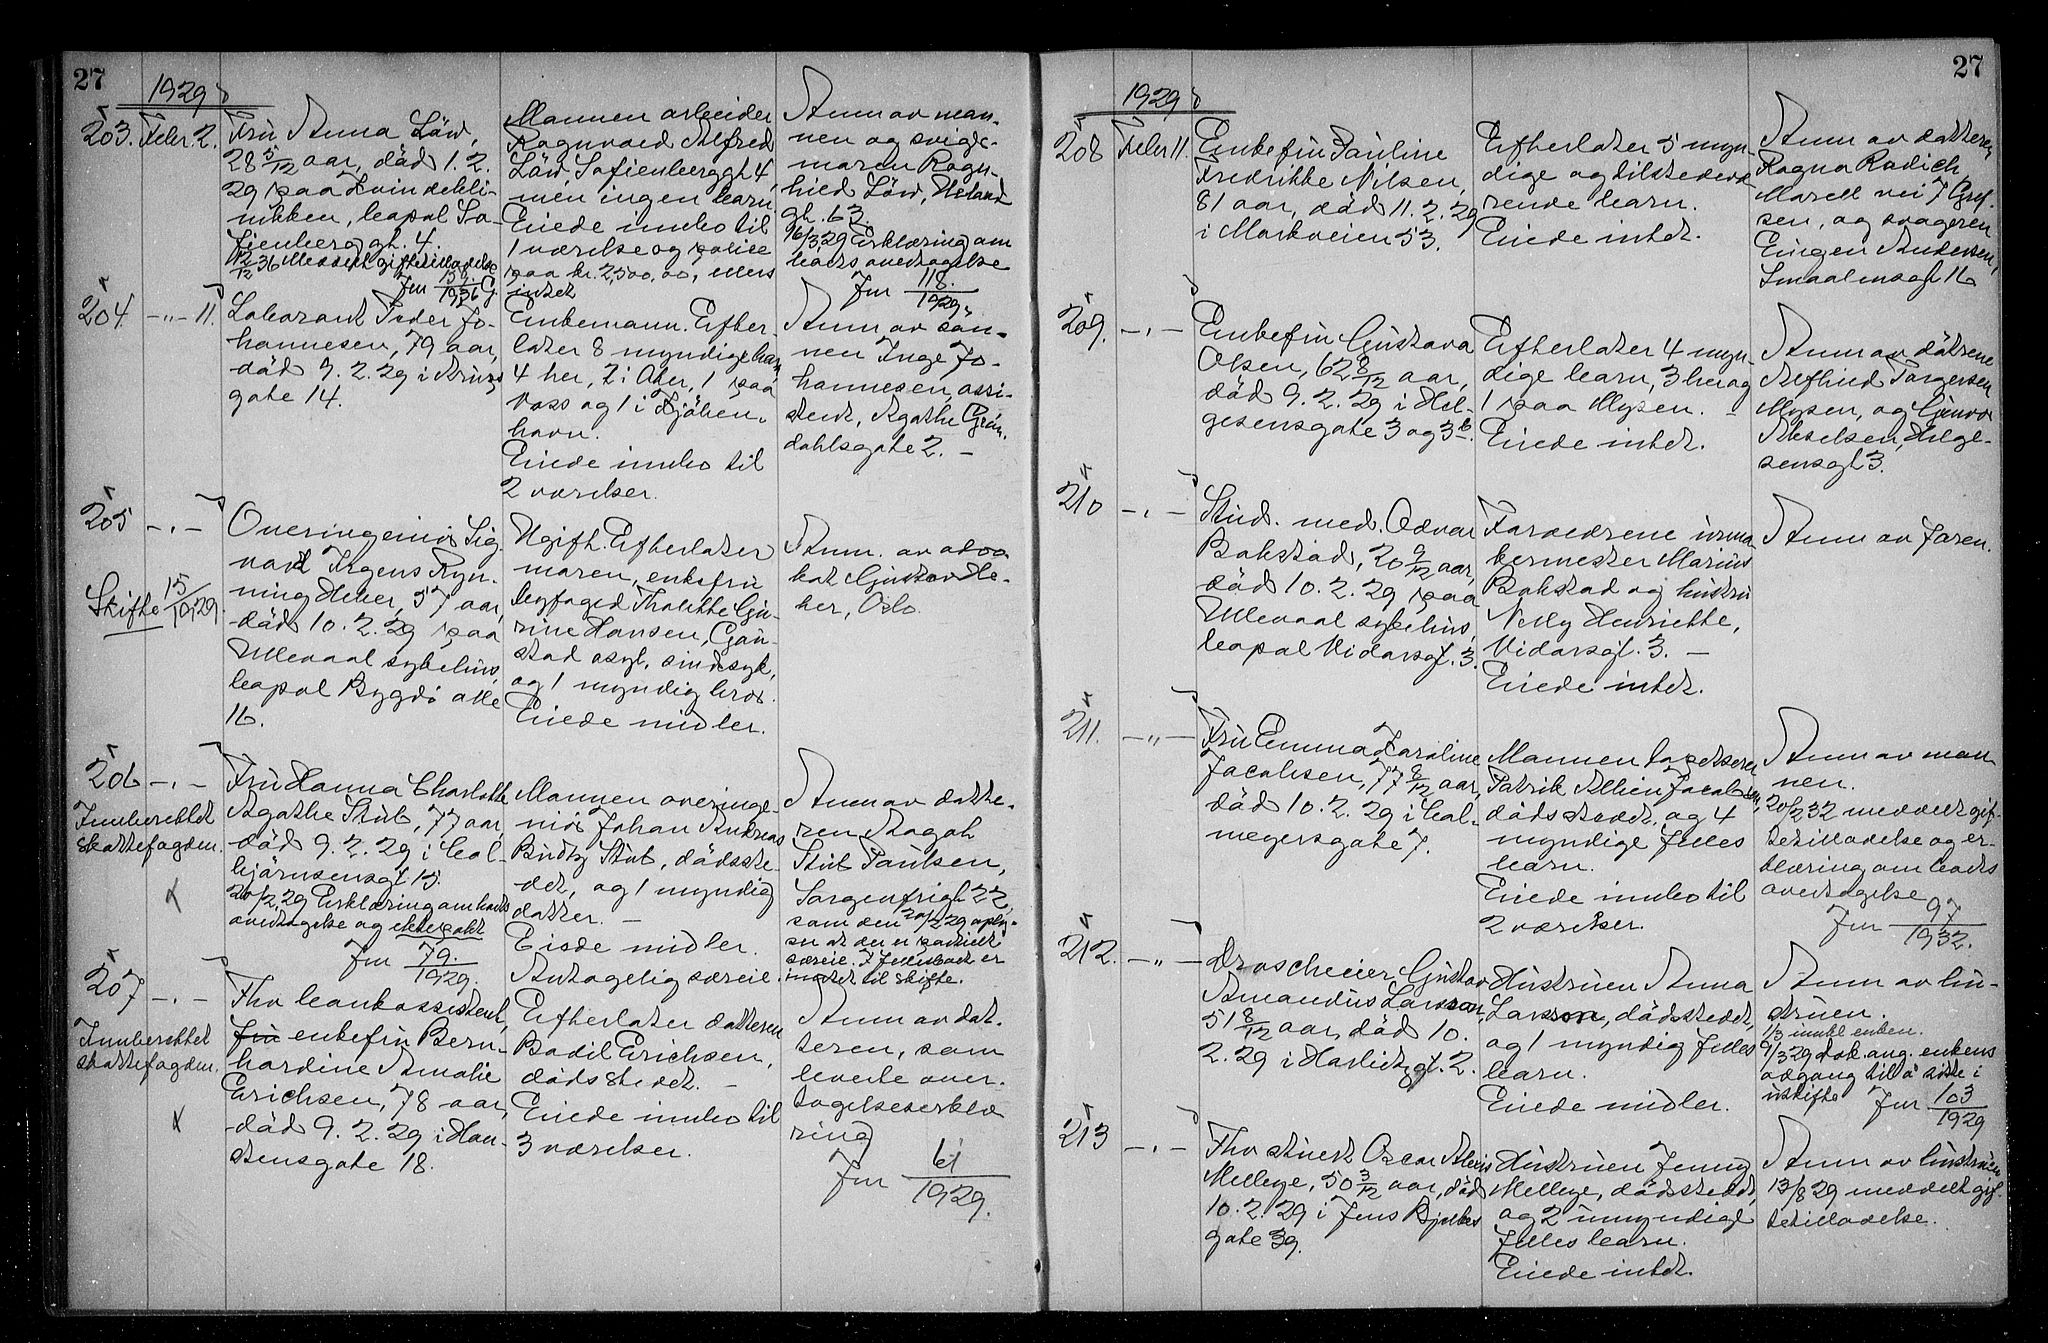 27
1929
203. Febr. 2.
Fru Anna Löw,
28 5/12 aar, död 1.2.
29 paa Kvindekli-
nikken, bopæl So-
fienberggt. 4.
12/12 36 Meddelt giftetilladelse
Jnr 1936
Mannen arbeider
Ragnvald Alfred
Löw, Sofienberggt 4,
men ingen barn
Eiede innbo til
1 værelse og police
paa kr. 2500,00, ellers
intet
Anm av man-
nen og svige-
moren Ragn-
hild Löw,
gt. 63.
16/3 29 Erklæring om
boets overtagelse
Jnr 118
1929.
204 -"- 11.
Laborant Peder Jo-
hannesen, 79 aar,
död 9.2.29 i Kruses
gate 14.
Enkemann. Efter-
later 8 myndige barn,
4 her, 2 i Aker, 1 paa
Voss og 1 i Kjöben-
havn.
Eiede innbo til
2 værelser.
Anm av sön-
nen Inge Jo-
hannesen, assi-
stent, Agathe Grön-
dahlsgate 2. -
205 -"-
Skifte 15/10 29.
Overingeniör Sig-
vard Irgens Ryn-
ning Heber, 57 aar,
död 10.2.29 paa
Ullevaal sykehus,
bopæl Bygdö alle
16.
Ugift. Efterlater
moren, enkefru
byfoged Thalette Gu-
rine Hansen, Gau-
stad asyl, sindsyk,
og 1 myndig bror.
Eiede midler.
Anm. av advo
kat Gustav He-
ber, Oslo.
206 -"-
Innberettet
skattefogden.
Fru Hanna Charlotte
Agathe Stub, 77 aar
död 9.2.29 i Col-
björnsensgt 15.
20/2 29 Erklæring om boets
overtagelse og ektepakt
Jnr 79.
1929.
Mannen overinge-
niör Johan Andreas
Budtz Stub, dödsste-
det, og 1 myndig
datter. -
Eiede midler
Antagelig særeie.
Anm av datte-
ren Aagot
Stub Paulsen,
Sorgenfrigt 22,
som den 20/2 29 oply-
ser at der er partielt
særeie. I fellesboet er
intet til skifte.
207 -"-
Innberettet
skattefogden.
Fhv bankassistent,
fru enkefru Bern-
hardine Amalie
Erichsen, 78 aar,
död 9.2.29 i Han-
stensgate 18.
Efterlater datteren
Bodil Erichsen,
dödsstedet. -
Eiede innbo til
3 værelser.
Anm av dat-
teren, som
leverte over-
tagelseserklæ
ring
Jnr 61
1929.
27
1929
208 Febr 11.
Enkefru Pauline
Fredrikke Nilsen,
81 aar, död 11.2.29
i Markveien 53.
Efterlater 5 myn
dige og tilstedevæ
rende barn.
Eiede intet.
Anm av datteren
Ragna Radich
Morell vei 7 Gref-
sen, og svogeren
Eugen Andersen,
Smaalensgt 16
209. -"-
Enkefru Gustava
Olsen, 62 8/12 aar,
död 9.2.29 i Hel-
gesensgate 3 og 3b.
Efterlater 4 myn-
dige barn, 3 her og
1 paa Mysen. -
Eiede intet.
Anm av dötrene
Alfhild Torgersen
Mysen, og Gunvor
Akselsen, Helge-
sensgt 3.
210 -"-
Stud. med. Odvar
Bakstad, 20 9/12 aar,
död 10.2.29 paa
Ullevaal sykehus,
bopæl Vidarsgt. 3.
Foreldrene urma
kermester Marius
Bakstad og hustru
Nelly Henriette,
Vidarsgt. 3. -
Eiede intet.
Anm av faren.
211. -"-
Fru Emma Karoline
Jacobsen, 77 8/12 aar,
död 10.2.29 i Cal-
meyersgate 7.
Mannen tapetserer
Patrik Albin Jacobsen,
dödsstedet, og 4
myndige felles
barn.
Eiede innbo til
2 værelser.
Anm av man
nen.
20/2 32 meddelt gif-
tetilladelse og er-
klæring om boets
overtagelse
Jnr 97
1932.
212. -"-
Droscheeier Gustav
Amandus Larsson,
51 8/12 aar, död 10.
2.29 i Havlitzgt. 2.
Hustruen Anna
Larsson, dödsstedet,
og 1 myndig felles
barn.
Eiede midler.
Anm av hu-
struen.
1/3 innkl enken.
9/3 29 dok. ang. enkens
adgang til å sitte i
uskifte Jnr 103
1929
213 -"-
Fhv stuert Oscar Alexis
Mellbye, 50 3/12 aar, död
10.2.29 i Jens Bjelkes
gate 39.
Hustruen Jenny
Mellbye, dödsstedet,
og 2 umyndige
felles barn.
Eiede intet.
Anm av hustruen
13/8 29 meddelt gif-
tetilladelse.